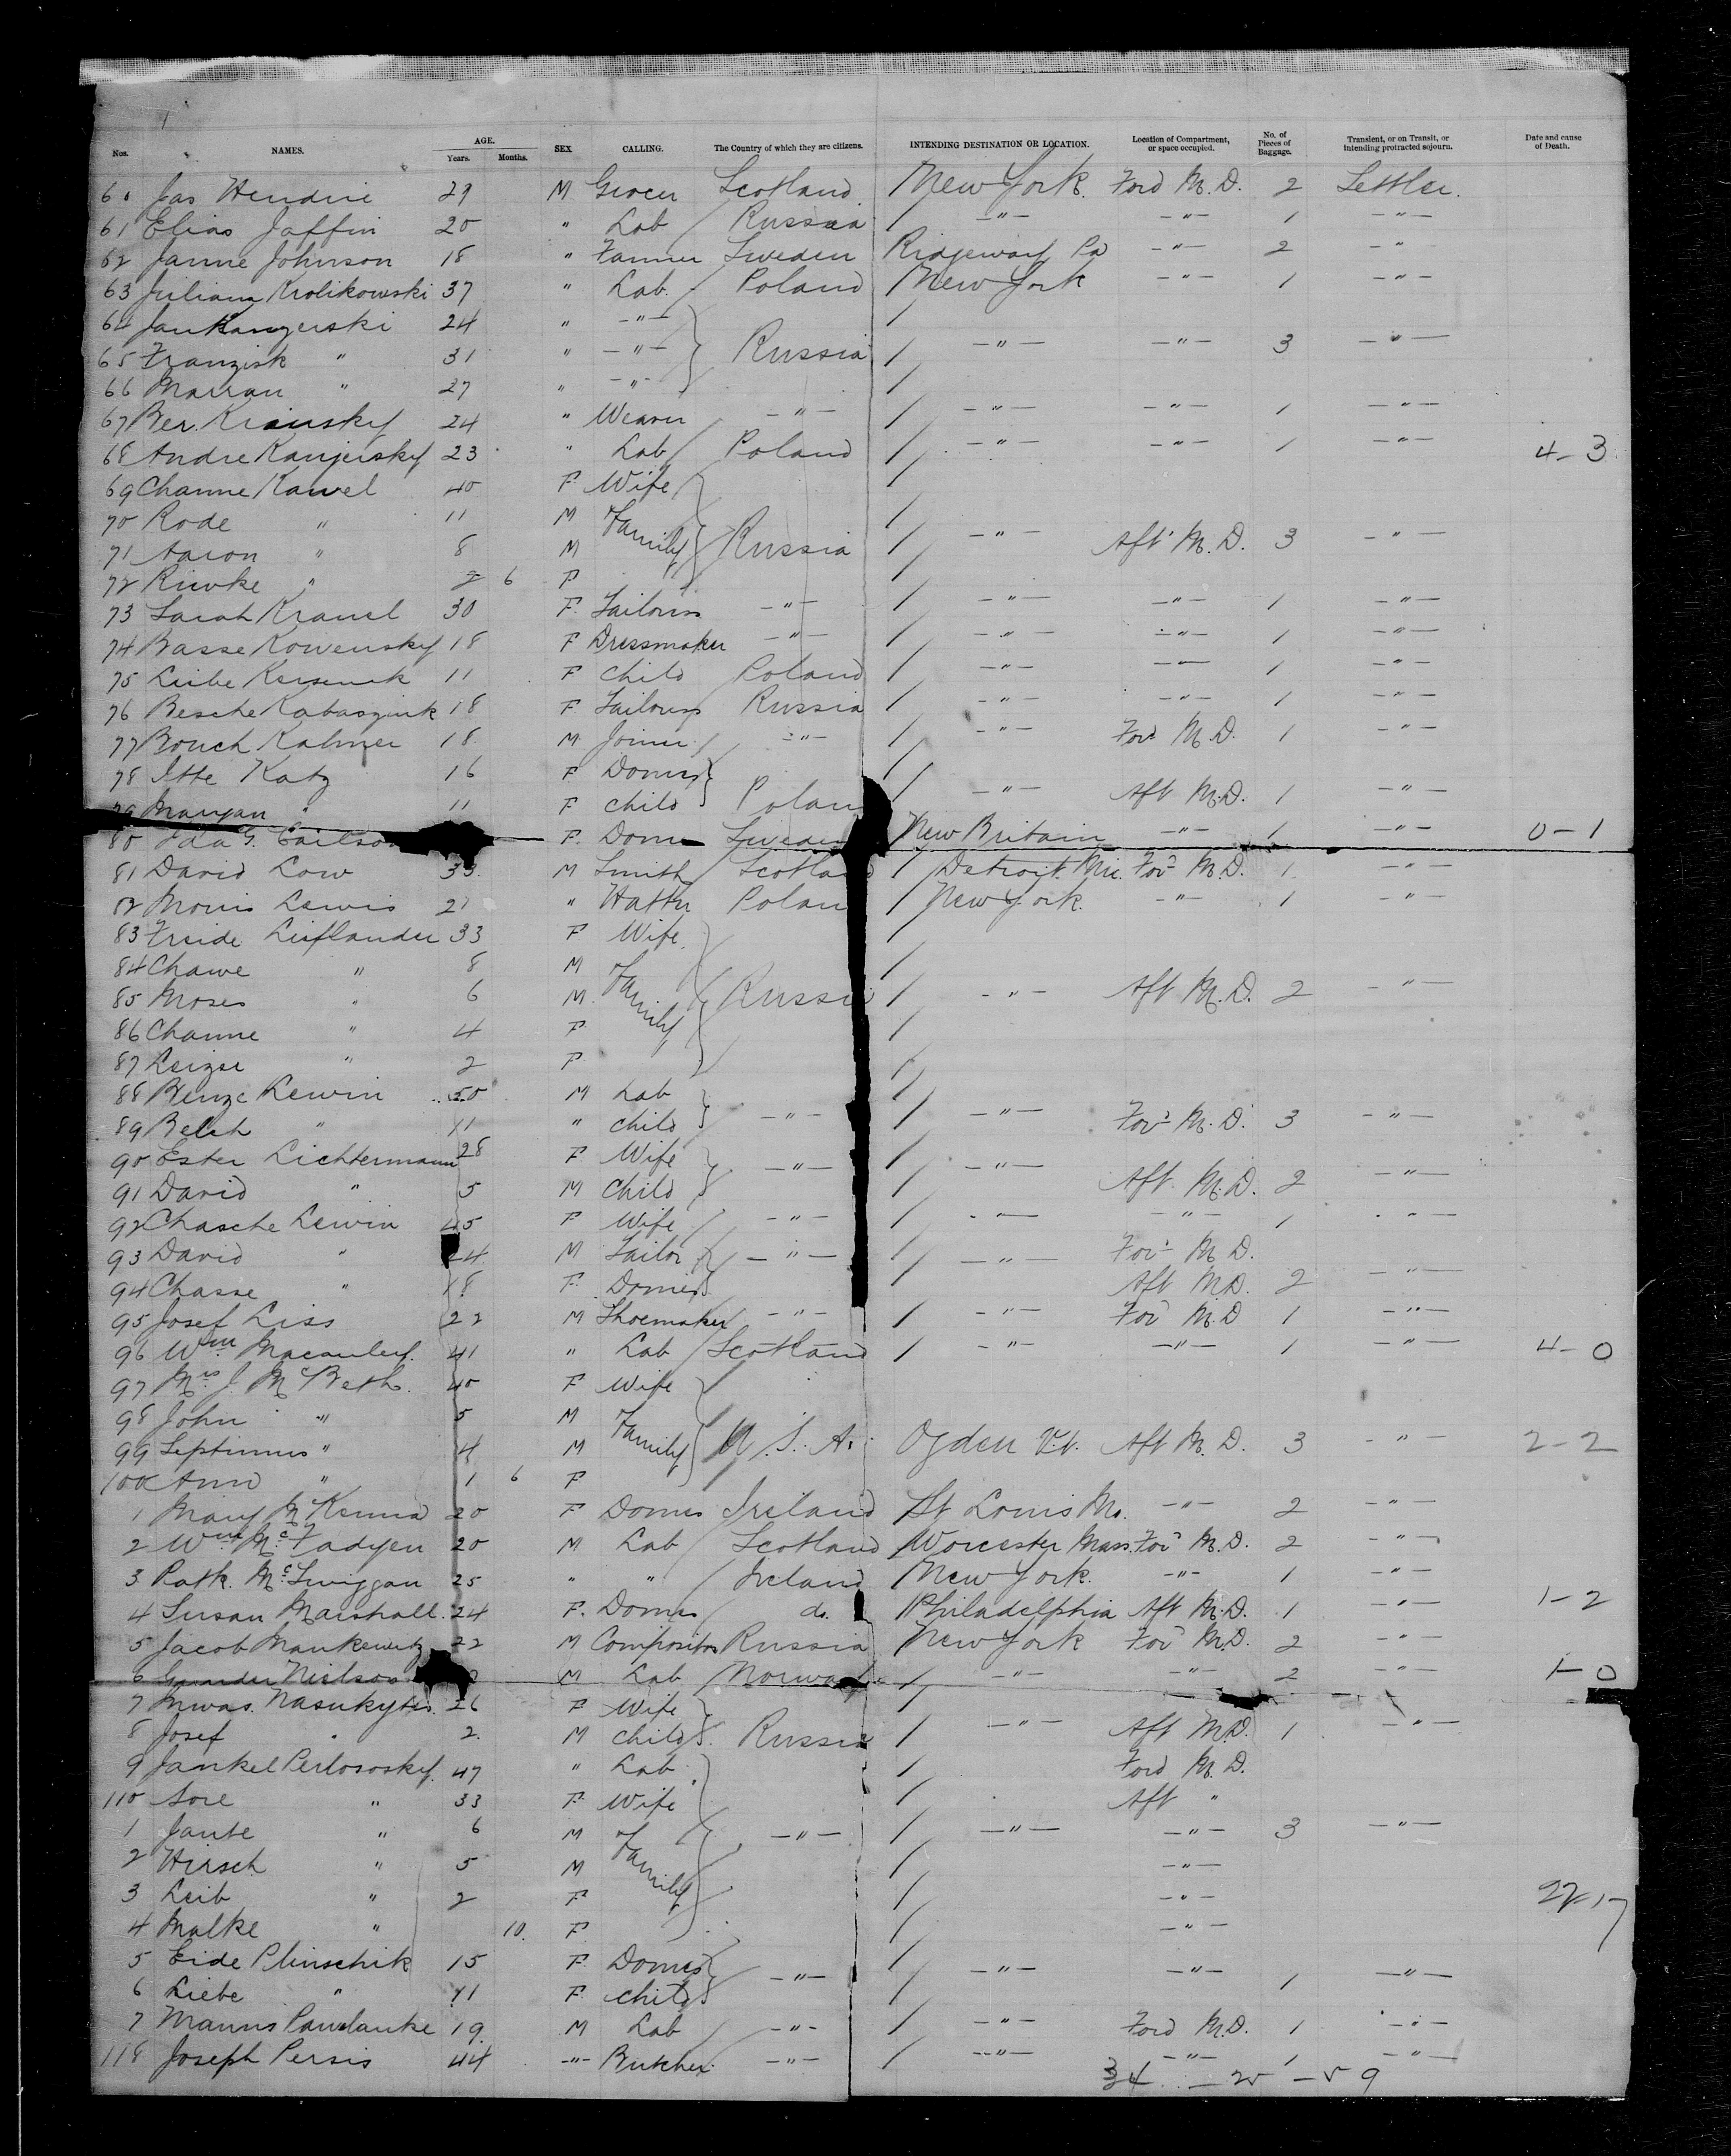 Nos. NAMES. AGE. Years. Months. SEX CALLING. The Country of which they are citizens. INTENDING DESTINATION OR LOCATION. Location of Compartment, or space occupied. No. of Pieces of Baggage. Transient, or on Transit, or intending protracted sojourn. Date and cause of Death.
60 Jas Hendrie 29 M Grocer Scotland New York Ford M.D. 2 Settler.
61 Elias Jaffin 20 " Lab / Russia / —"— —"— 1 —"—
62 Janne Johnson 18 " Farmer Sweden Ridgeway Pa —"— 2 —"
63 Krolikowski 37 " Lab. Poland New York —"— 1 —"—
64 Jan 24 " —"— /
65 Franzisk " 31 " —"— Russia / —"— —"— 3 —"—
66 Marran " 27 " —"— /
67 Ber. Krainsky 24 " Weaver —"— / —"— —"— 1 —"—
68 Andre Kanjersky 23 " Lab / Poland / —"— —"— 1 —"— 4-3
69 Channe Kawel 40 F Wife /
70 Rode " 11 M Family /
71 Aaron " 8 M Russia / —"— Aft M.D. 3 —"—
72 Riwke " 2 6 F /
73 Sarah Krawel 30 F. Tailoress —"— / —"— —"— 1 —"—
74 Basse Kowensky 18 F Dressmaker —"— / —"— —"— 1 —"—
75 Liebe 11 F Child Poland / —"— —"— 1 —"—
76 Besche 18 F. Tailoress Russia / —"— —"— 1 —"—
77 Bouch Kalmer 18 M. Joiner / —"— / —"— For M.D. 1 —"—
78 Itte Katz 16 F Domes /
79 Maryan " 11 F Child Polan / —"— Aft M.D. 1 —"—
80 Ida G. F. Dome Swede New Britain —"— 1 —"— 0-1
81 David Low 33. M Smith / Scotlan / Detroit. Mic. For M.D. 1 —"—
82 Morris Lewis 21 " Hatter Polan / New York. —"— 1 —"—
83 Freide Lieflander 33 F Wife /
84 Chawe " 8 M Family /
85 Moses " 6 M. Russi / —"— Aft M.D. 2 —"—
86 Channe " 4 F /
87 Leizse " 2 F /
88 Benze Lewin 50 M Lab /
89 Belch " 11 " Child —"— / —"— For M.D. 3 —"—
90 Ester Lichtermann 28 F Wife —"— / —"—
91 David " 5 M Child / Aft M.D. 2 —"—
92 Chasche Lewin 45 F Wife / —"— / —"— —"— 1 —"—
93 David " 24 M Tailor —"— / —"— For M.D.
94 Chasse " 18 F. Domes / Aft M.D. 2 —"—
95 Josef Liss 22 M Shoemaker —"— / —"— For M.D 1 —"—
96 Wm Macauley. 41 " Lab / Scotland / —"— —"— 1 —"— 4-0
97 Mrs J. McBeth. 40 F Wife
98 John " 5 M Family
99 Septimus " 4 M U.S.A. Ogden V.t. Aft M.D. 3 —"— 2-2
100 Ann " 1 6 F
1 Mary McKenna 20 F Domes Ireland St Louis Mo. —"— 2 —"—
2 Wm McFadyen 20 M Lab / Scotland Worcester Mass. For M.D. 2 —"—
3 Patk. McSwiggan 25 " " / Ireland New York. —"— 1 —"—
4 Susan Marshall. 24 F. Domes / do. Philadelphia Aft M.D. 1 —"— 1-2
5 Jacob Mankewitz 22 M Compositor Russia New York For M.D. 2 —"—
6 M Lab / Norway / —"— —"— 2 —"— 1-0
7 26 F Wife /
8 Josef " 2. M Child Russia / —"— Aft M.D. 1 —"—
9 Jankel 47 " Lab / Ford M.D.
110 Sore " 33 F. Wife / Aft "
1 Jante " 6 M Family —"— / —"— —"— 3 —"—
2 Hirsch " 5 M / —"—
3 Leib " 2 F / —"— 22-17
4 Malke " 10. F / —"—
5 Eide Plinschik 15 F Domes —"— / —"— —"—
6 Liebe " 11 F. Child / 1 —"—
7 19. M Lab / —"— / —"— Ford M.D. 1 —"—
118 Joseph Persis 44 —"— Butcher —"— / —"— —"— 1 —"—
34 — 25 — 59